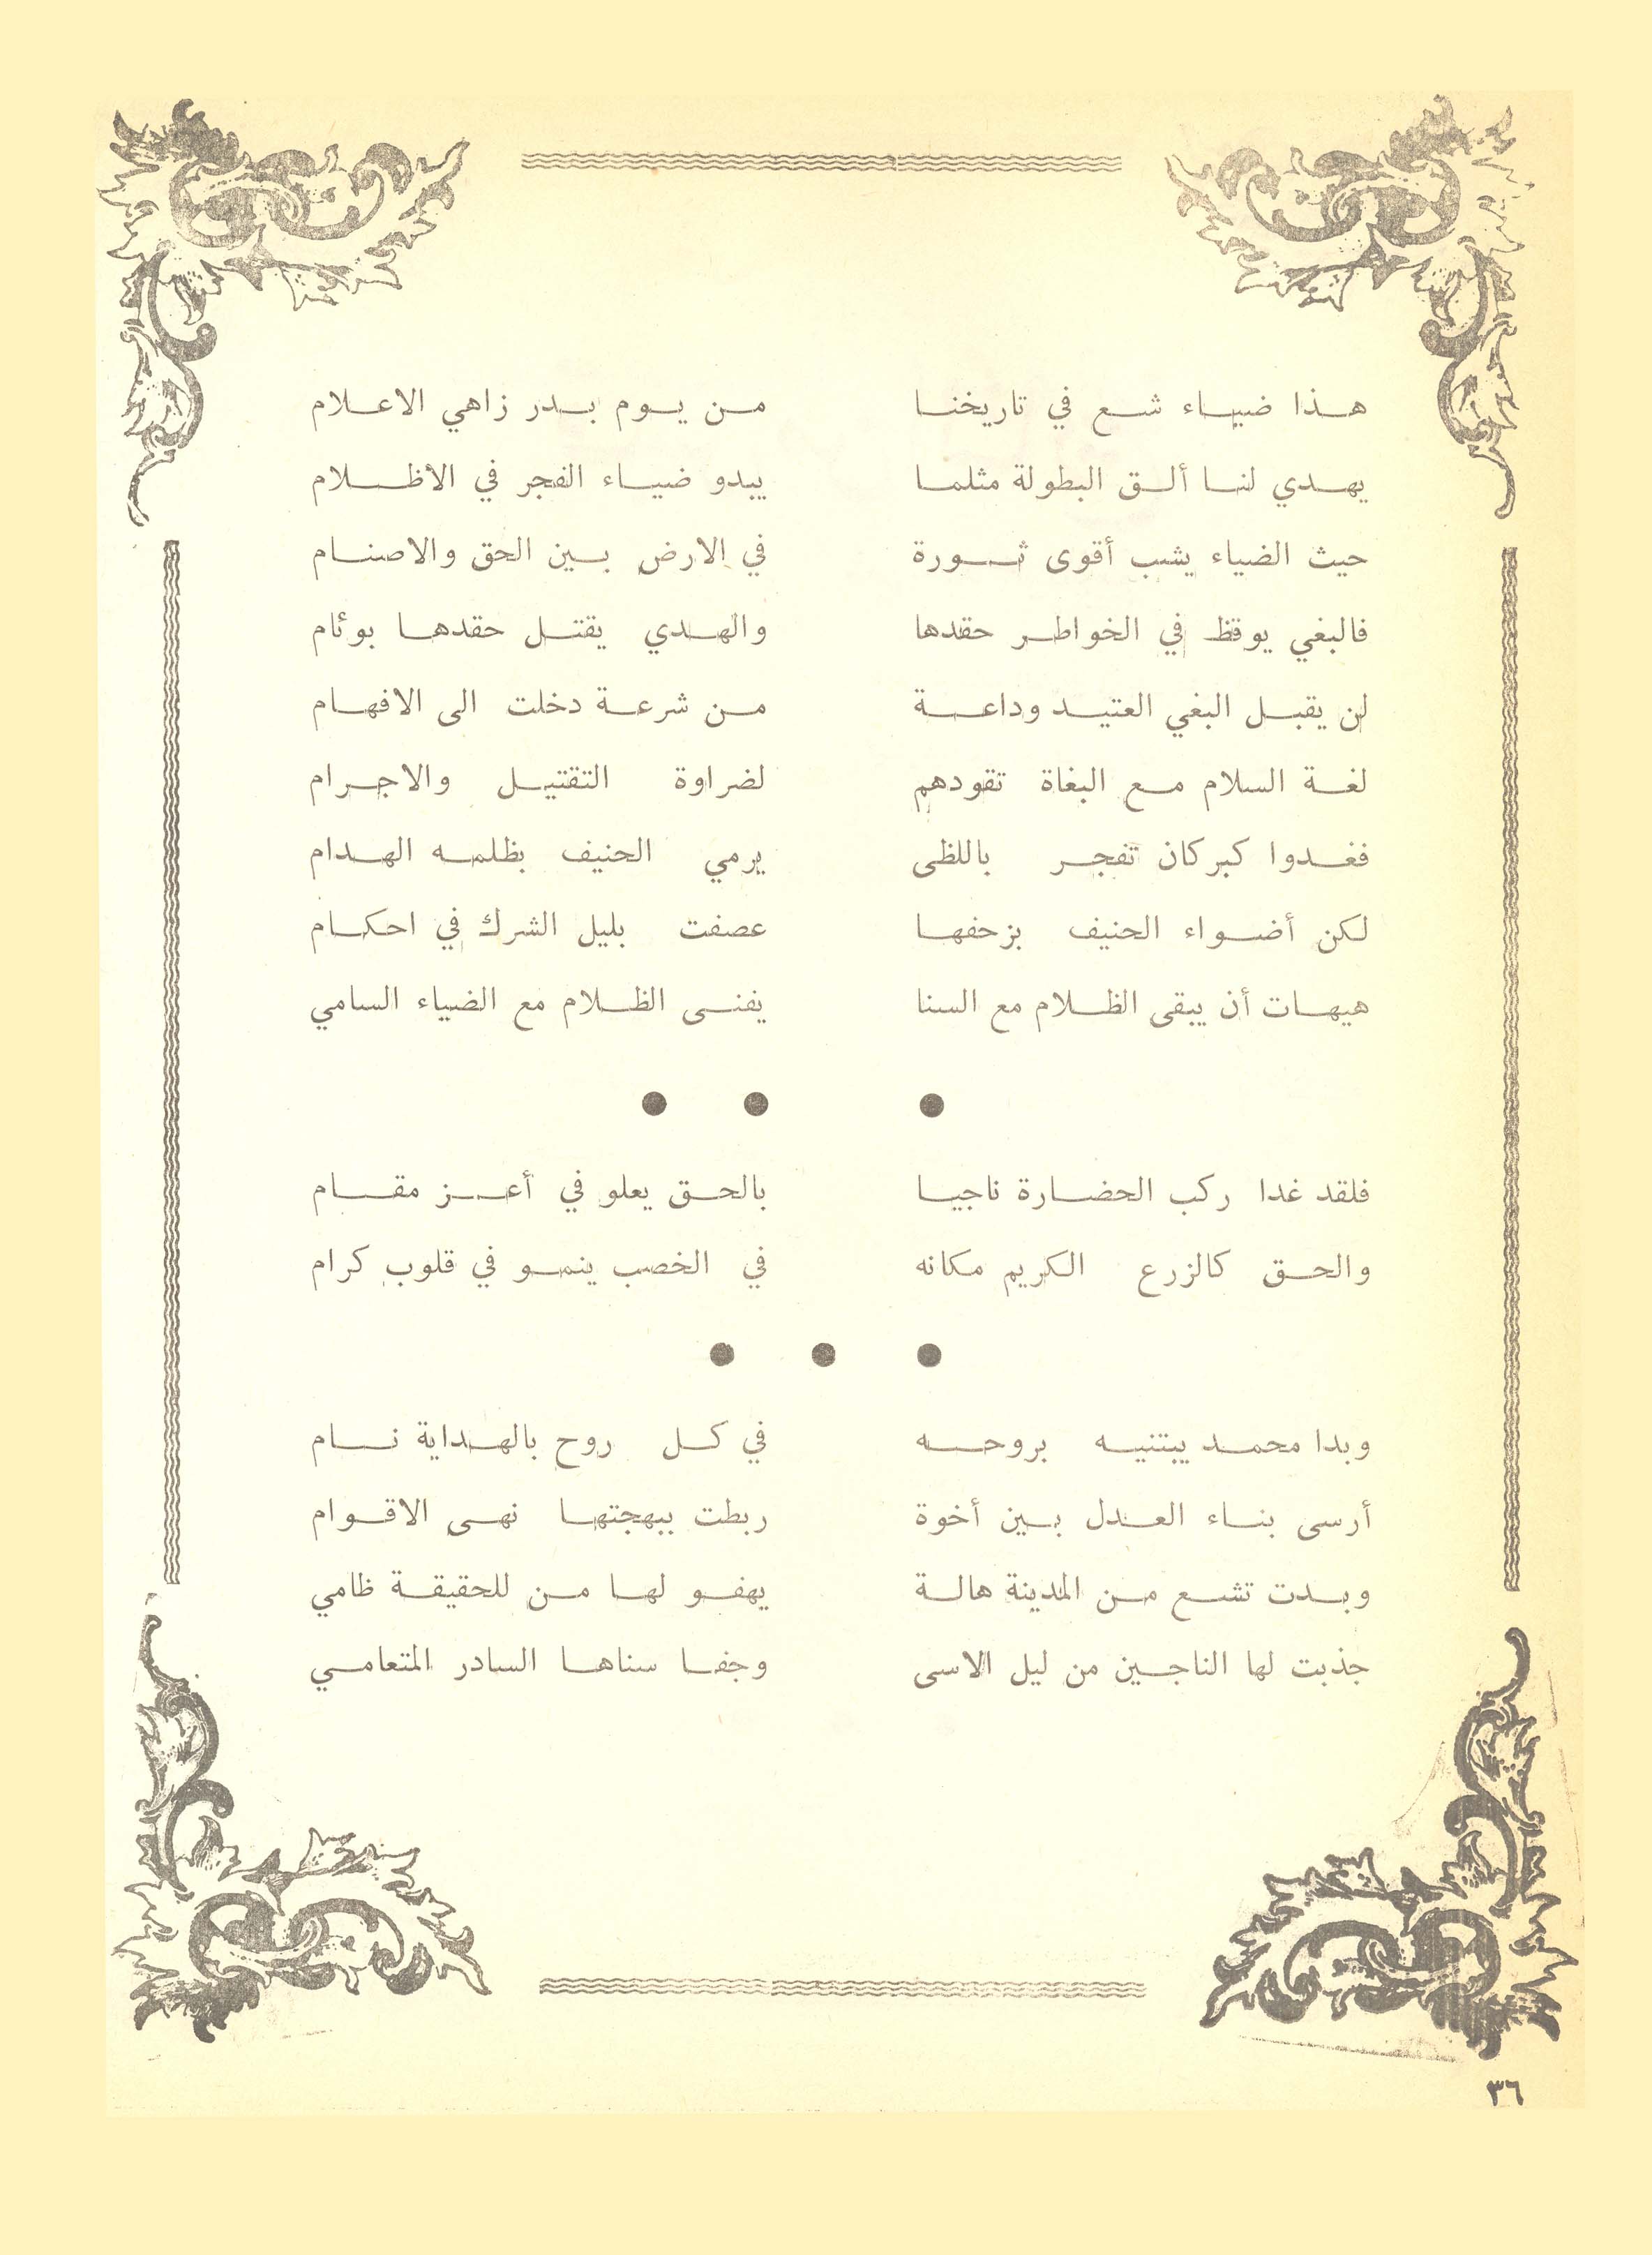 هذا ضياء شع في تاريخنا من يوم بدر زاهي الاعلام
يهدي لنا ألق البطولة مثلما يبدو ضياء الفجر في الاظلام
حيث الضياء يشب أقوى ثورة في الارض بين الحق والاصنام
فالبغي يوقظ في الخواطر حقدها والهدي يقتل حقدها بوئام
لن يقبل البغي العتيد وداعة من شرعة دخلت الى الافهام
لغة السلام مع البغاة تقودهم لضراوة التقتيل والاجرام
فغدوا كبركان تفجر باللظى يرمي الحنيف بظلمه الهدام
لكن أضواء الحنيف بزحفها عصفت بليل الشرك في احكام
هيهات أن يبقى الظلام مع السنا يفنى الظلام مع الضياء السامي
● ● ●
فلقد غدا ركب الحضارة ناجيا بالحق يعلو في أعز مقام
والحق كالزرع الكريم مكانه في الخصب ينمو في قلوب كرام
● ● ●
وبدا محمد يبتنيه بروحه في كل روح بالهداية نام
أرسى بناء العدل بين أخوة ربطت ببهجتها نهى الاقوام
وبدت تشع من المدينة هالة يهفو لها من للحقيقة ظامي
جذبت لها الناجين من ليل الاسى وجفا سناها السادر المتعامي
٣٦